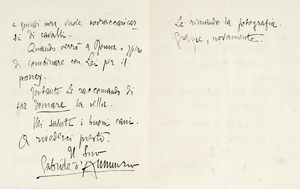 e quindi non vuole sovraccaricar-
si di cavalli.
Quando verrò a Roma, spero
di combinare con Lei per il
poney.
Intanto Le raccomando di
far domare la sella.
Mi saluti i buoni cani.
A rivederci presto.
Il Suo
Gabriele d'Annunzio
Le rimando la fotografia.
Grazie, novamente.